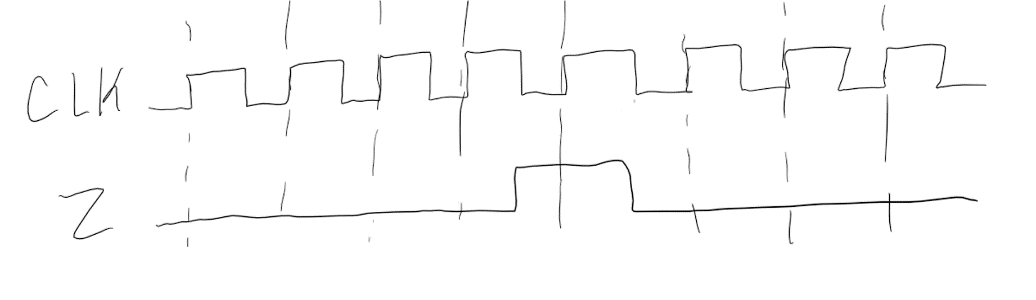 CLK
Z